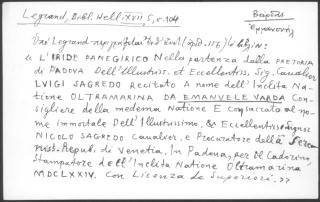 Legrand, Bibl. Hell. XVII 5, σ. 104
Βαρδᾶς
Ἐμμανουὴλ
Ὑπὸ Legrand περιγράφεται
« L'IRIDE PANEGIRICO Nella partenza della PRETORIA
di PADOVA Dell'Illustriss. et Eccellentiss, Sig. Cavalier
LUIGI SAGREDO Recitato A nome dell'Inclita Na-
tione OLTRAMARINA DA EMANUELE VARDA Con-
sigliere della medema Natione E consacrato al no-
me immortale Dell'Illustrissimo, & Eccellentiss. Signor
NICOLO SAGREDO Cavalier, e Procuratore della Sere-
niss. Repub. di Venetia. In Padova, per il Cadorino,
Stampatore dell'Inclita Natione Oltramarina
MDCLXXIV. Con Licenza de Superiori. »